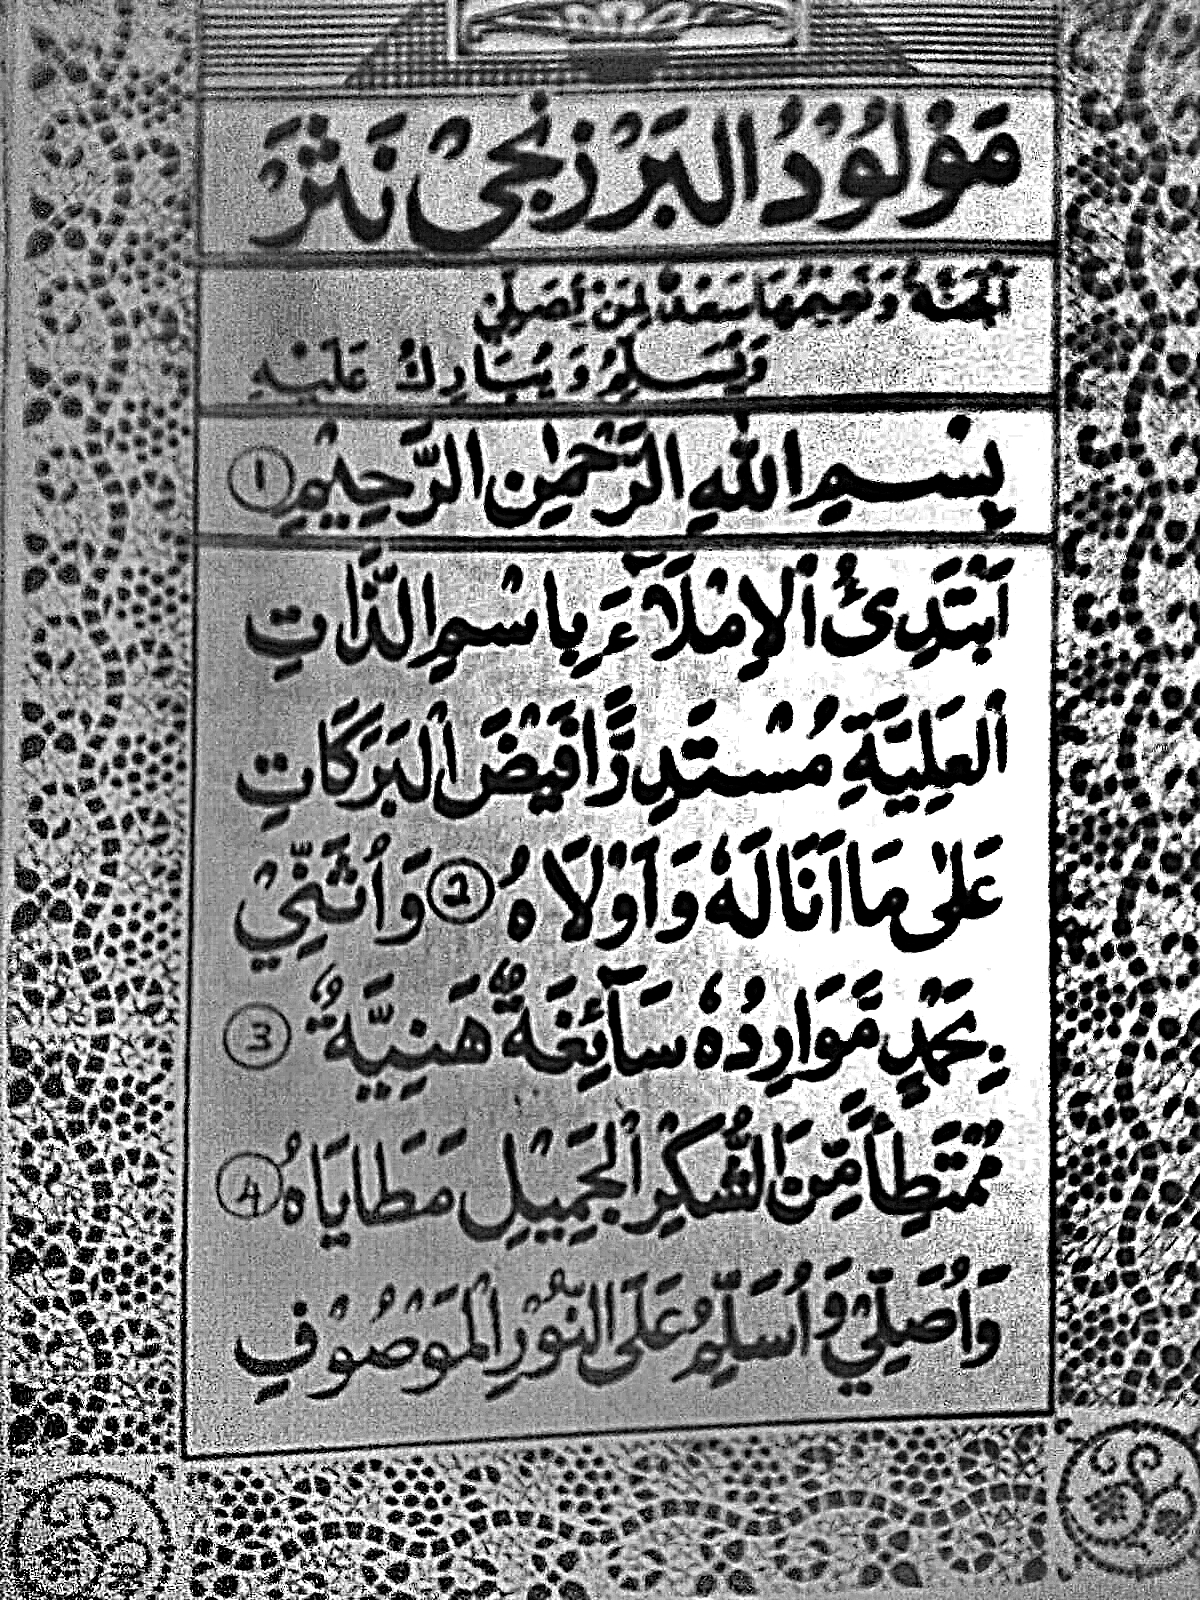 مَوْلُوْدُ الْبَرْزَنْجِيْ نَثَرْ
اَلْجَنَّةُ وَنَعِيْمُهَا سَعْدٌ لِمَنْ يُصَلِّيْ
وَيُسَلِّمُ وَيُبَارِكُ عَلَيْهِ
بِسْمِ اللهِ الرَّحْمٰنِ الرَّحِيْمِ ①
اَبْتَدِئُ الْاِمْلَآءَ بِاسْمِ الذَّاتِ
الْعَلِيَّةِ مُسْتَدِرًّا فَيْضَ الْبَرَكَاتِ
عَلٰى مَا اَنَالَهٗ وَاَوْلَاهُ ② وَاُثَنِّيْ
بِحَمْدٍ مَّوَارِدُهٗ سَآئِغَةٌ هَنِيَّةٌ ③
مُمْتَطِأً مِّنَ الشُّكْرِ الْجَمِيْلِ مَطَايَاهُ ④
وَاُصَلِّيْ وَاُسَلِّمُ عَلَى النُّوْرِ الْمَوْصُوْفِ